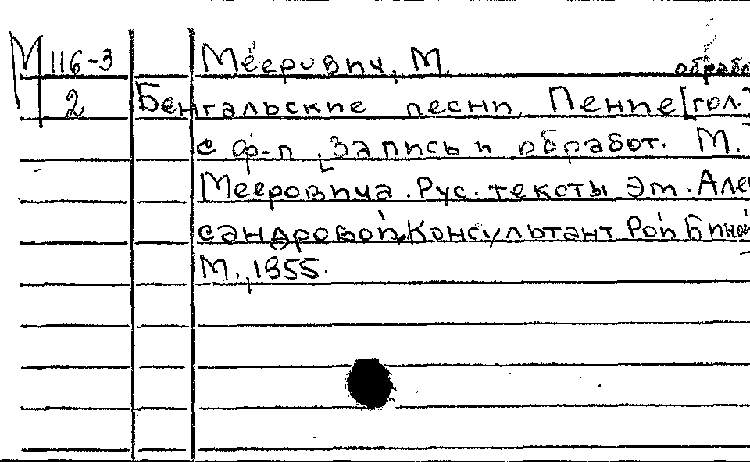 М 116-3 Меерович, М. обрабо
2 Бенгальские песни. Пение [гол.]
с ф-п. Запись и обработ. М.
Мееровича. Рус. тексты Эт. Алек
сандровой, Консультант Рой Биной
М., 1955.